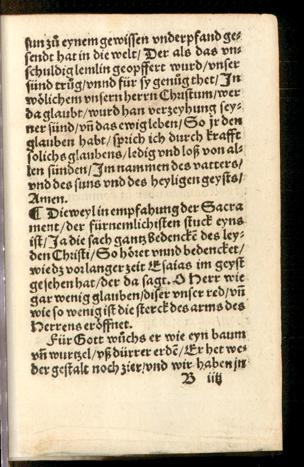 sun zů eynem gewissen vnderpfand ge-
sendt hat in die welt/ Der als das vn-
schuldig lemlin geopffert wurd/ vnser
sünd trůg/ vnnd für sy genůg thet/ In
wölichem vnsern herrn Christum/ wer
da glaubt/ wurd han verzeyhung sey-
ner sünd/ vñ das ewig leben/ So jr den
glauben habt/ sprich ich durch krafft
solichs glaubens/ ledig vnd loß von al-
len sünden/ Im nammen des vatters/
vnd des suns vnd des heyligen geysts/
Amen.
¶ Dieweyl in empfahung der Sacra
ment/ der fürnemlichsten stuck eyns
ist/ Ja die sach gantz Bedencke des ley-
den Christi/ So höret vnnd bedencket/
wie dz vor langer zeit Esaias im geyst
gesehen hat/ der da sagt. O Herr wie
gar wenig glauben/ diser vnser red/ vñ
wie so wenig ist die sterck des arms des
Herrens eröffnet.
Für Gott wůchs er wie eyn baum
vñ wurtzel/ vß dürrer erdẽ/ Er het we-
der gestalt noch zier/ vnd wir haben jn
B iiij